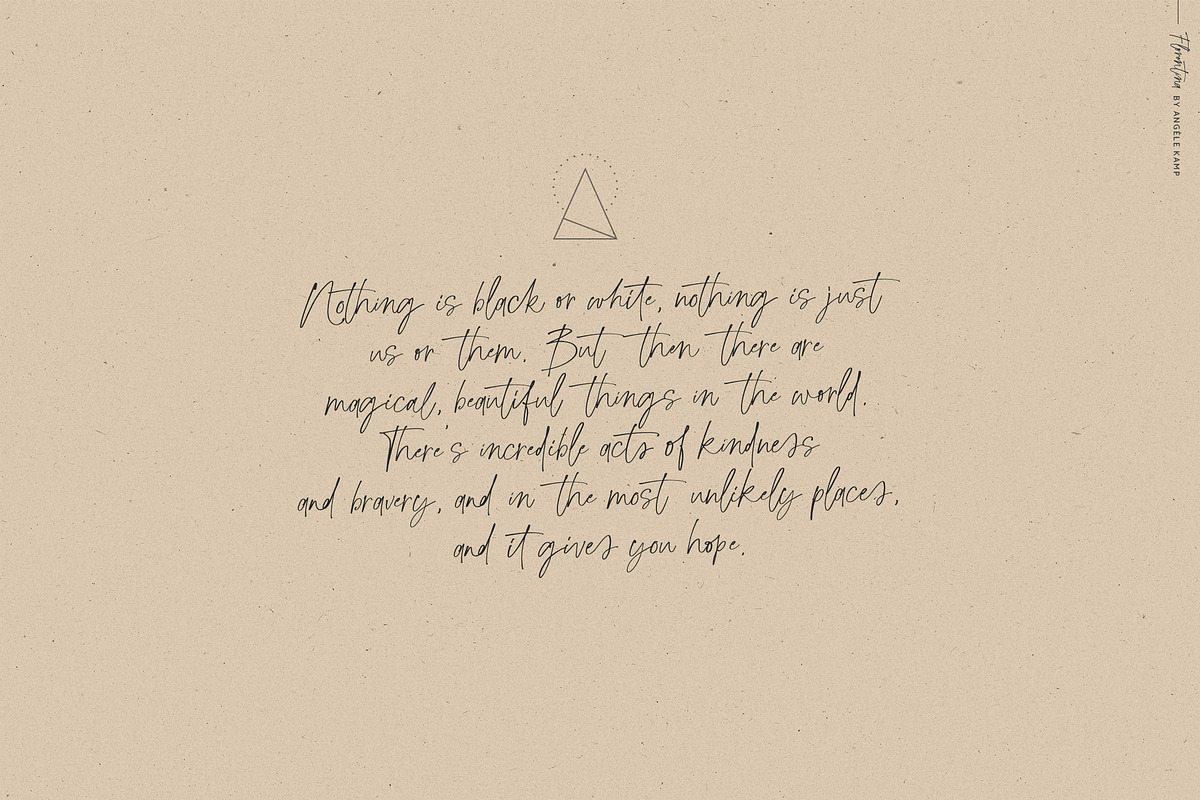 Nothing is black or white, nothing is just
us or them. But then there are
magical, beautiful things in the world.
There's incredible acts of kindness
and bravery, and in the most unlikely places,
and it gives you hope.
Florentina BY ANGÈLE KAMP